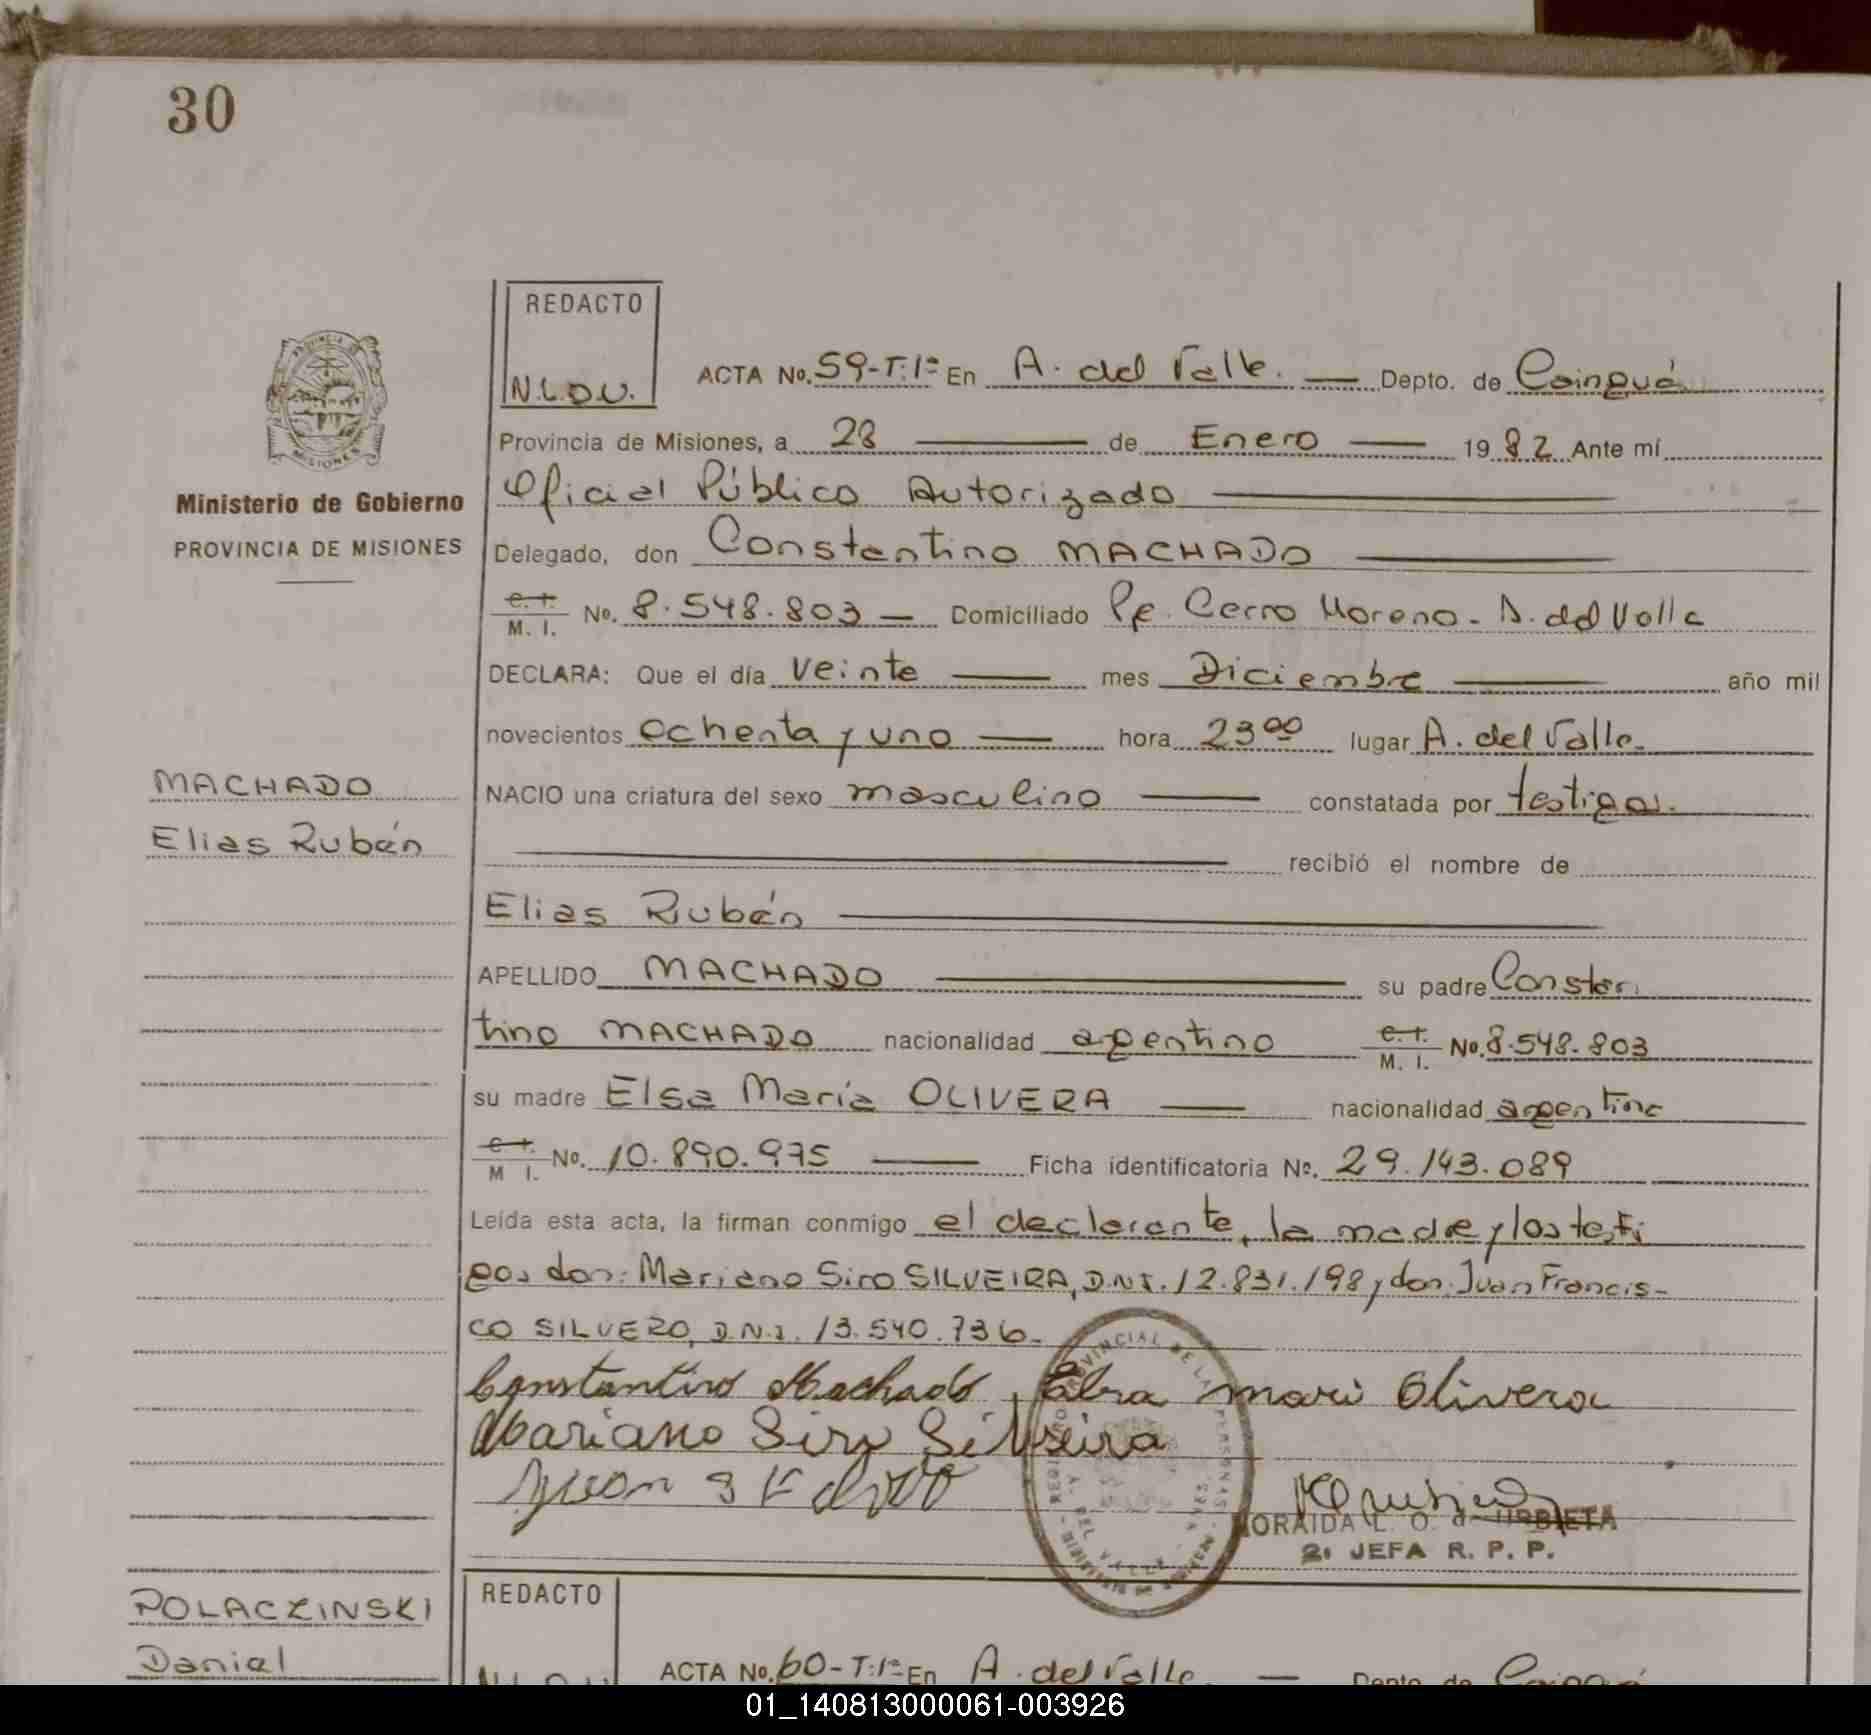 30
REDACTO
N.L.O.U.
ACTA No. 59-T:1º En A. del Valle. — Depto. de Cainguá
Provincia de Misiones, a 28 — de Enero — 1982 Ante mí
Oficial Público Autorizado
Ministerio de Gobierno
PROVINCIA DE MISIONES
Delegado, don Constantino MACHADO
C. I. / M. I. No. 8.548.803 — Domiciliado Pje. Cerro Moreno - A. del Valle
DECLARA: Que el día veinte — mes Diciembre — año mil
novecientos ochenta y uno — hora 23 00 lugar A. del Valle.
MACHADO
Elias Rubén
NACIO una criatura del sexo masculino — constatada por testigos.
recibió el nombre de
Elias Rubén
APELLIDO MACHADO — su padre Constan
tino MACHADO nacionalidad argentino C. I. / M. I. No. 8.548.803
su madre Elsa María OLIVERA — nacionalidad argentina
C. I. / M I. No. 10.890.975 — Ficha identificatoria No. 29.143.089
Leída esta acta, la firman conmigo el declarante, la madre y los testi
gos don: Mariano Siro SILVEIRA, D.N.I. 12.831.198 y don: Juan Francis-
co SILVERO, D.N.I. 13.540.736.
Constantino Machado, Elsa mari Olivera
Mariano Siro Silveira
Juan
PROVINCIAL DE LAS PERSONAS
A. DEL VALLE
MORAIDA L. O. d URBIETA
2ª JEFA R. P. P.
POLACZINSKI
Daniel
REDACTO
N.L.O.U.
ACTA No. 60-T:1º En A. del Valle. — Depto de Cainguá
01_140813000061-003926